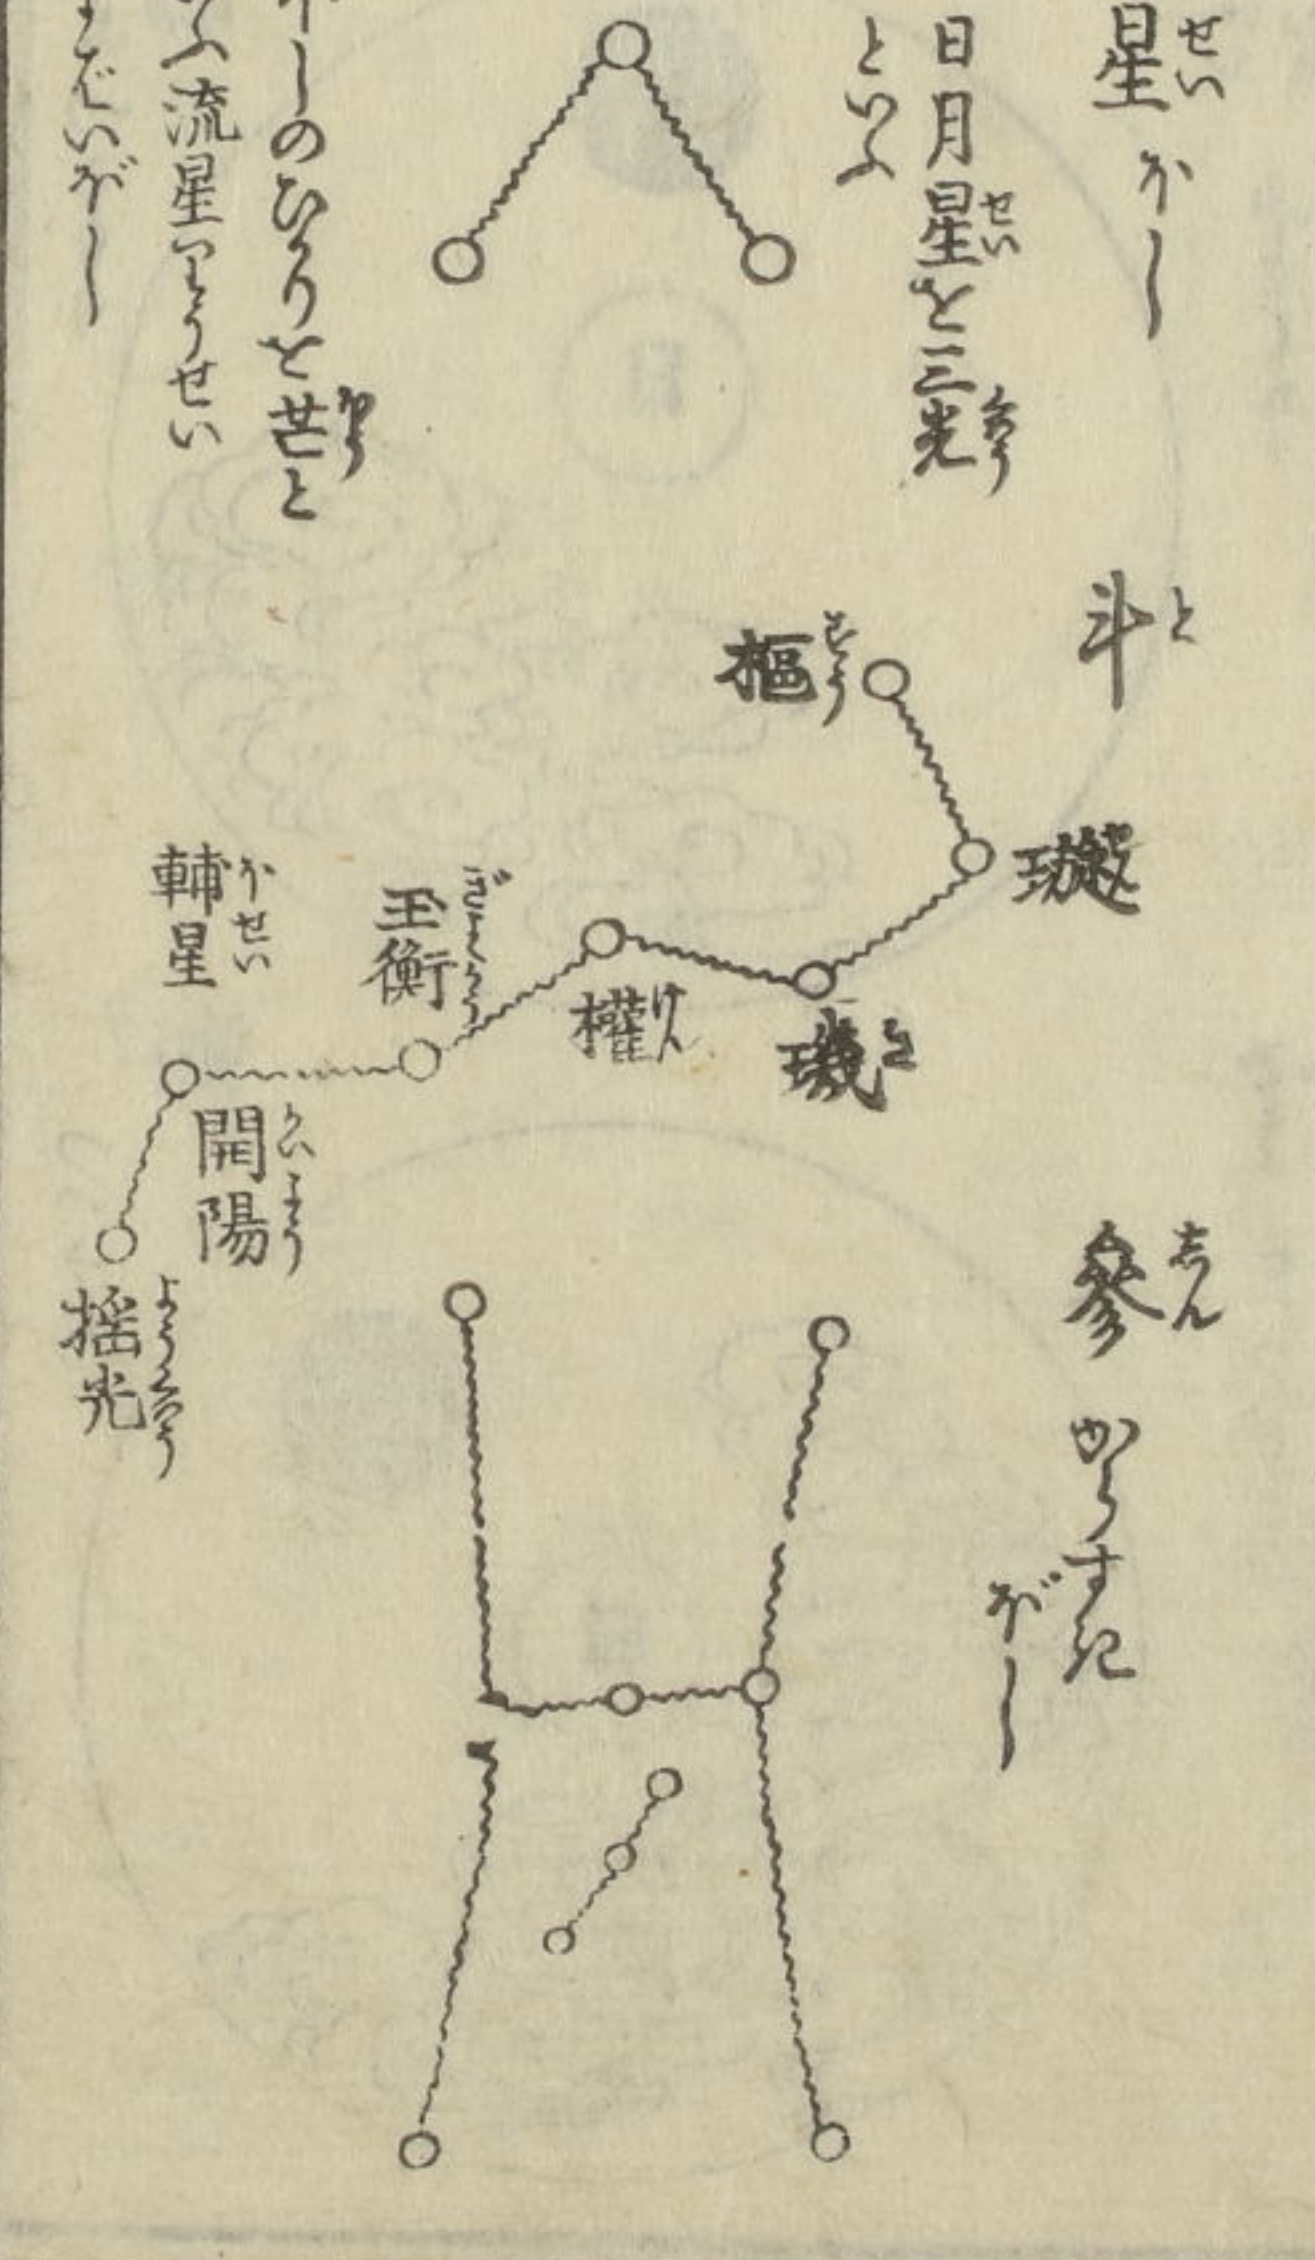 星 せい ほし
日月星を三光 せい くわう
といふ
ほしのひかりを芒と ばう
いふ流星りうせい
よばいぼし
斗 と
樞 すう
璇 せん
璣 き
權 けん
玉衡 ぎよくかう
開陽 かいよう
輔星 ほせい
揺光 ようくわう
參 しん からすき
ぼし